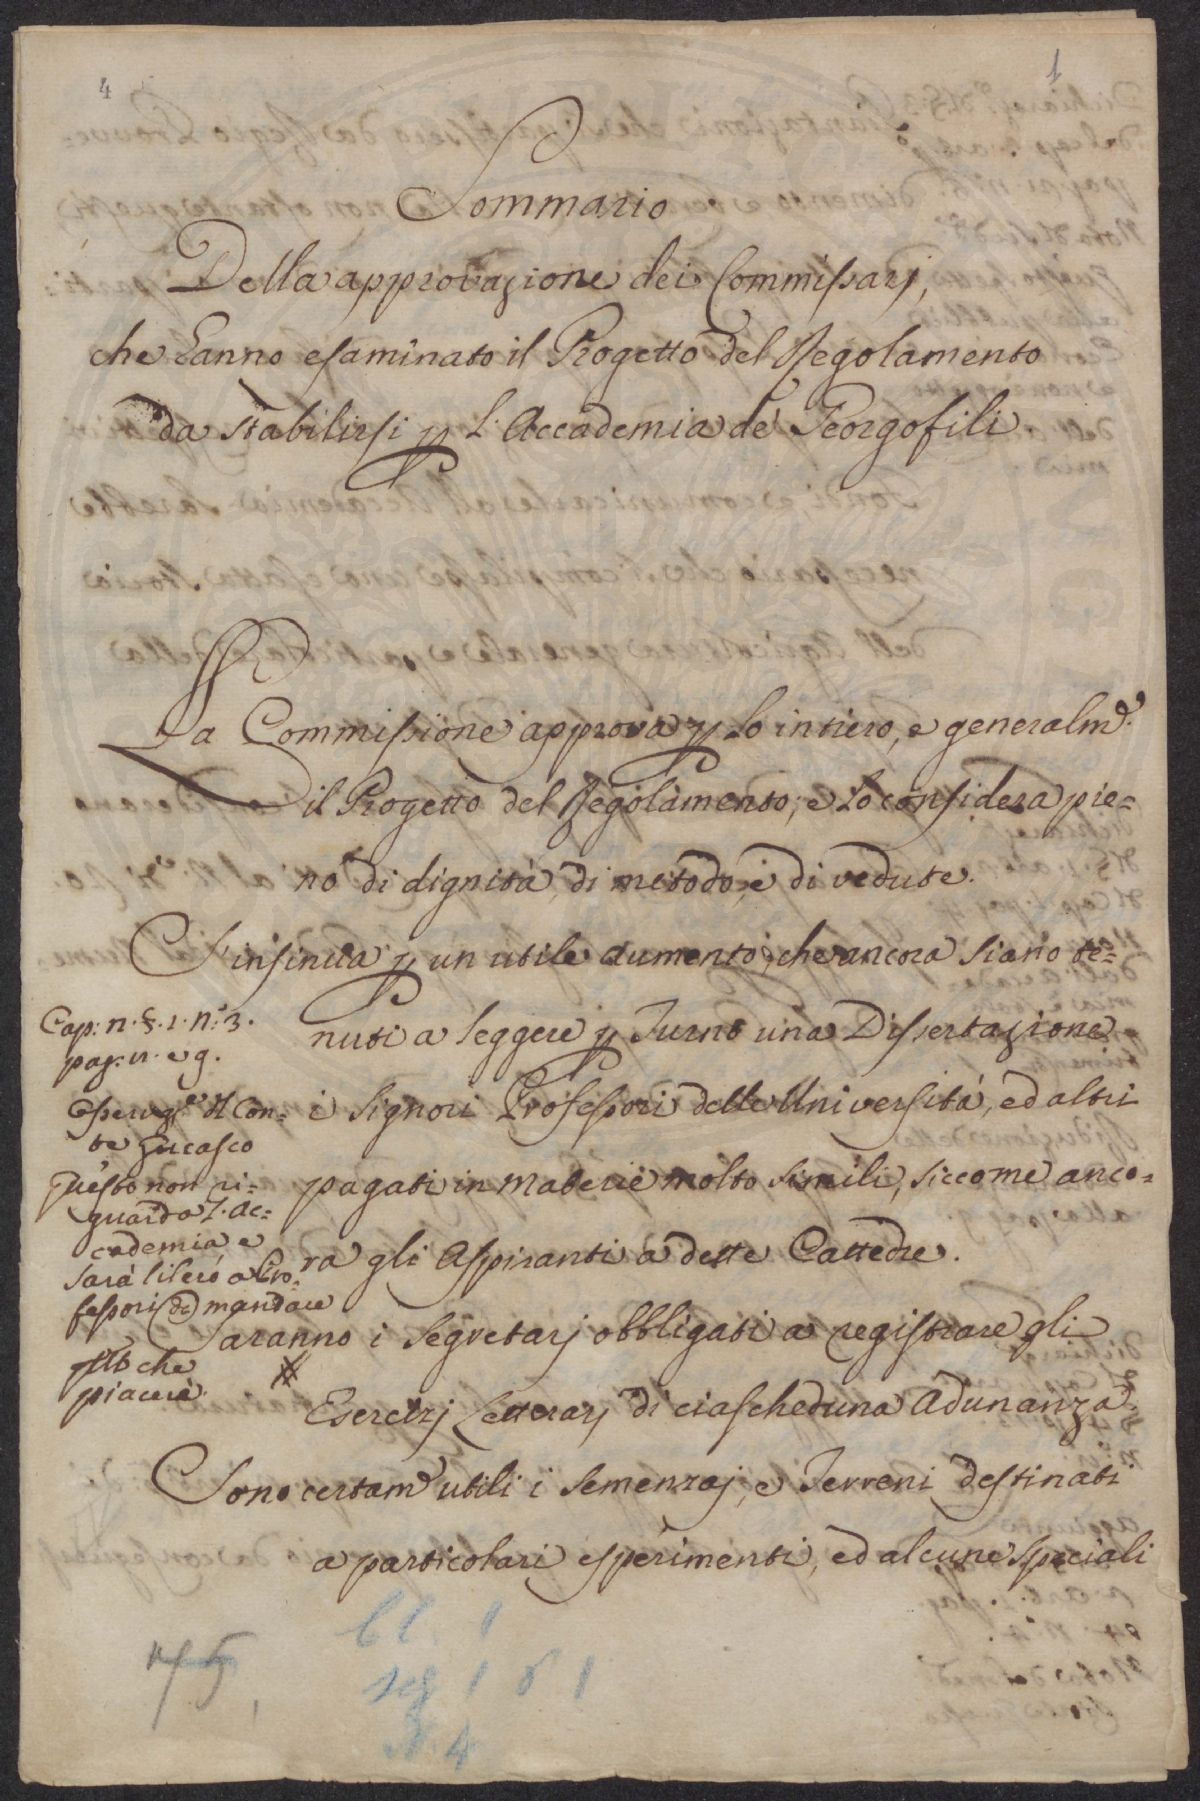 4
1
Sommario
Della approvazione dei Commissarj,
che hanno esaminato il Progetto del Regolamento
da stabilirsi p L'Accademia de' Georgofili
La Commissione approva p lo intiero, e generalm.e
il Progetto del Regolamento, e lo considera pie=
no di dignità, di metodo, e di vedute.
S'insinua p un utile aumento, che ancora siano te=
nuti a leggere p Turno una Dissertazione
i Signori Professori delle Università, ed altri
pagati in materie molto simili, siccome anco=
ra gli Aspiranti a dette Cattedre.
Saranno i Segretarj obbligati a registrare gli
Esercizj Letterarj di ciascheduna Adunanza.
Sono certam.e utili i Semenzaj, e Terreni destinati
a particolari esperimenti, ed alcune speciali
Cap: n. §. 1. n. 3.
pag. n. e g.
del Con=
te
Questo non ri=
guarda l'Ac=
cademia, e
sarà libero a' Pro=
fessori di mandare
che
piacerà.
1
1 6 1
N. 4